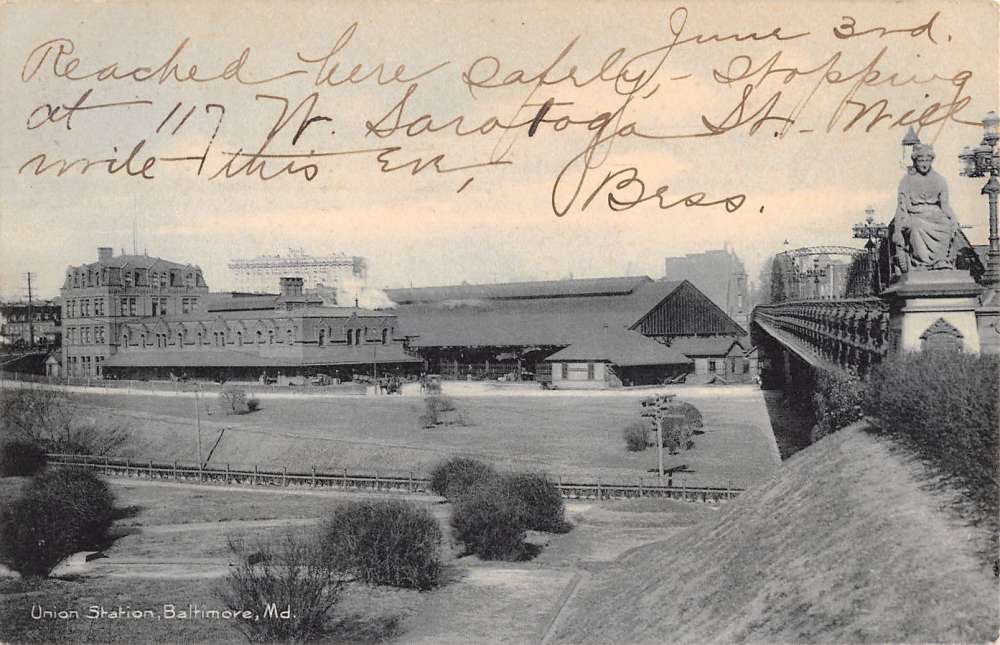 June 3rd.
Reached here safely, - Stopping
at 117 W. Saratoga St. - Will
write this Eve,
Bess.
Union Station, Baltimore, Md.